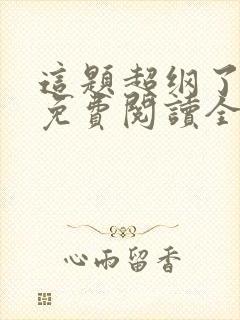 這題超纲了
免費閱讀全
心雨留香